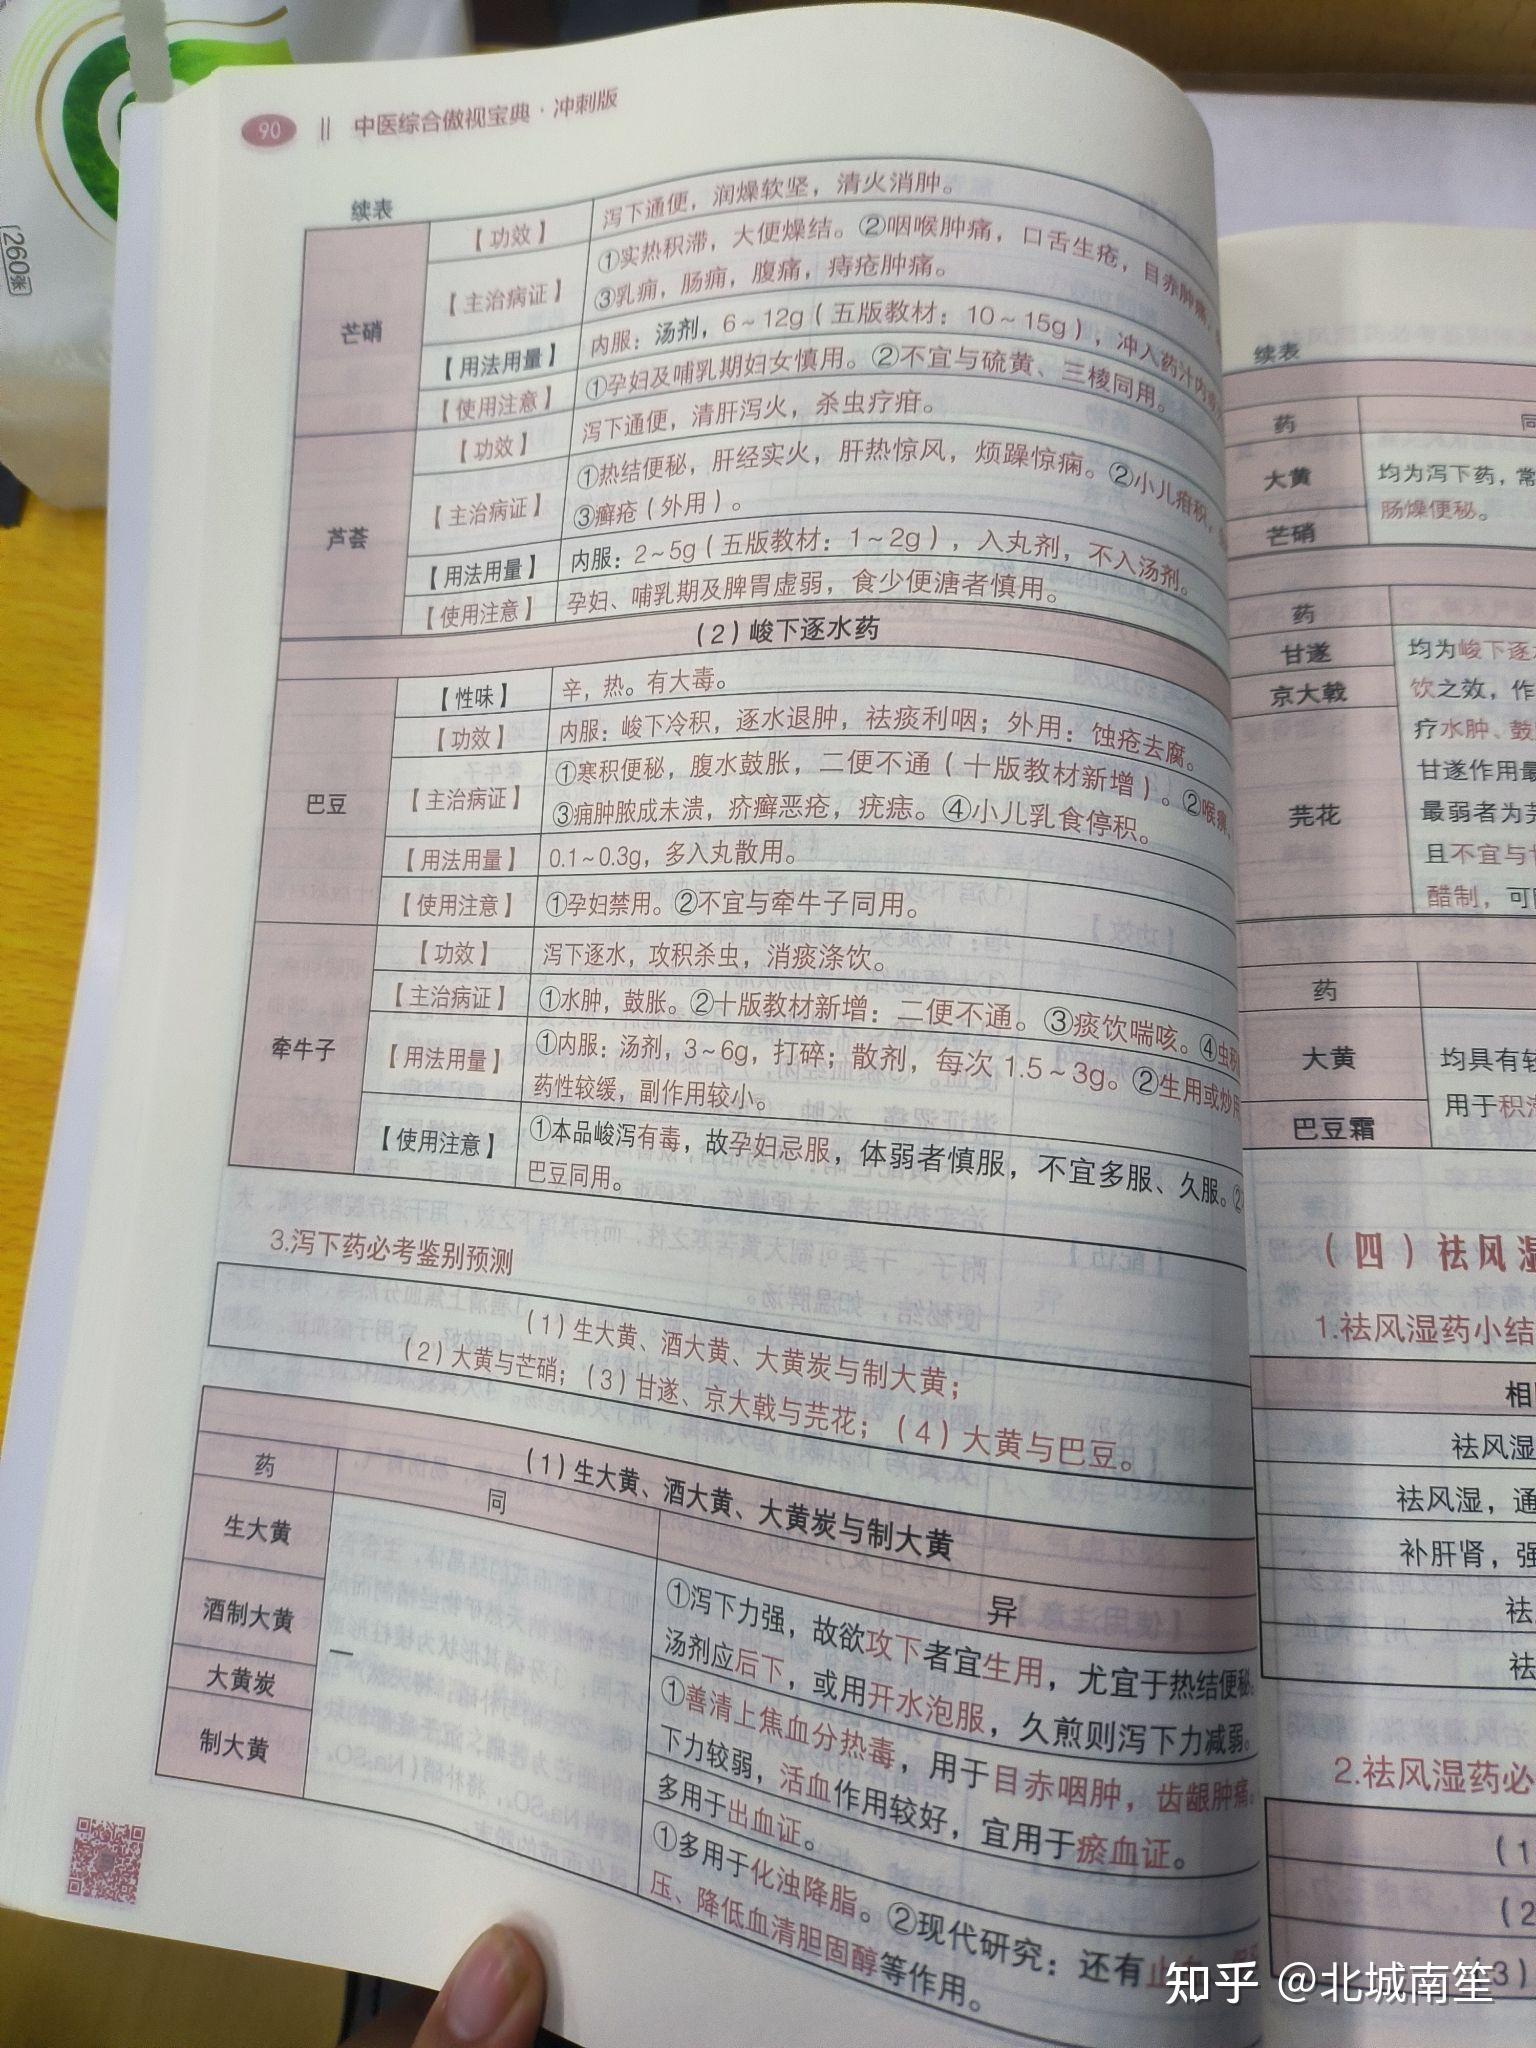 90 || 中医综合傲视宝典·冲刺版
续表
芒硝
【功效】 泻下通便，润燥软坚，清火消肿。
【主治病证】 ①实热积滞，大便燥结。②咽喉肿痛，口舌生疮，目赤肿痛，
③乳痈，肠痈，腹痛，痔疮肿痛。
【用法用量】 内服：汤剂，6～12g（五版教材：10～15g），冲入药汁内
【使用注意】 ①孕妇及哺乳期妇女慎用。②不宜与硫黄、三棱同用。
芦荟
【功效】 泻下通便，清肝泻火，杀虫疗疳。
【主治病证】 ①热结便秘，肝经实火，肝热惊风，烦躁惊痫。②小儿疳积，
③癣疮（外用）。
【用法用量】 内服：2～5g（五版教材：1～2g），入丸剂，不入汤剂。
【使用注意】 孕妇、哺乳期及脾胃虚弱，食少便溏者慎用。
（2）峻下逐水药
巴豆
【性味】 辛，热。有大毒。
【功效】 内服：峻下冷积，逐水退肿，祛痰利咽；外用：蚀疮去腐。
【主治病证】 ①寒积便秘，腹水鼓胀，二便不通（十版教材新增）。②喉痹
③痈肿脓成未溃，疥癣恶疮，疣痣。④小儿乳食停积。
【用法用量】 0.1～0.3g，多入丸散用。
【使用注意】 ①孕妇禁用。②不宜与牵牛子同用。
牵牛子
【功效】 泻下逐水，攻积杀虫，消痰涤饮。
【主治病证】 ①水肿，鼓胀。②十版教材新增：二便不通。③痰饮喘咳。④虫积
【用法用量】 ①内服：汤剂，3～6g，打碎；散剂，每次1.5～3g。②生用或炒用
药性较缓，副作用较小。
【使用注意】 ①本品峻泻有毒，故孕妇忌服，体弱者慎服，不宜多服、久服。②
巴豆同用。
3.泻下药必考鉴别预测
（1）生大黄、酒大黄、大黄炭与制大黄；
（2）大黄与芒硝；（3）甘遂、京大戟与芫花；（4）大黄与巴豆。
（1）生大黄、酒大黄、大黄炭与制大黄
药 同 异
生大黄
酒制大黄
大黄炭
制大黄
—
①泻下力强，故欲攻下者宜生用，尤宜于热结便秘。
汤剂应后下，或用开水泡服，久煎则泻下力减弱。
①善清上焦血分热毒，用于目赤咽肿，齿龈肿痛。
下力较弱，活血作用较好，宜用于瘀血证。
多用于出血证。
①多用于化浊降脂。②现代研究：还有止
压、降低血清胆固醇等作用。
续表
药 同
大黄
芒硝
均为泻下药，常
肠燥便秘。
药
甘遂
京大戟
芫花
均为峻下逐水
饮之效，作
疗水肿、鼓
甘遂作用最
最弱者为芫
且不宜与甘
醋制，可
药
大黄
巴豆霜
均具有较
用于积滞
（四）祛风湿
1.祛风湿药小结
相
祛风湿
祛风湿，通
补肝肾，强
祛
祛
2.祛风湿药必
（1
（2
3）
260张
知乎 @北城南笙